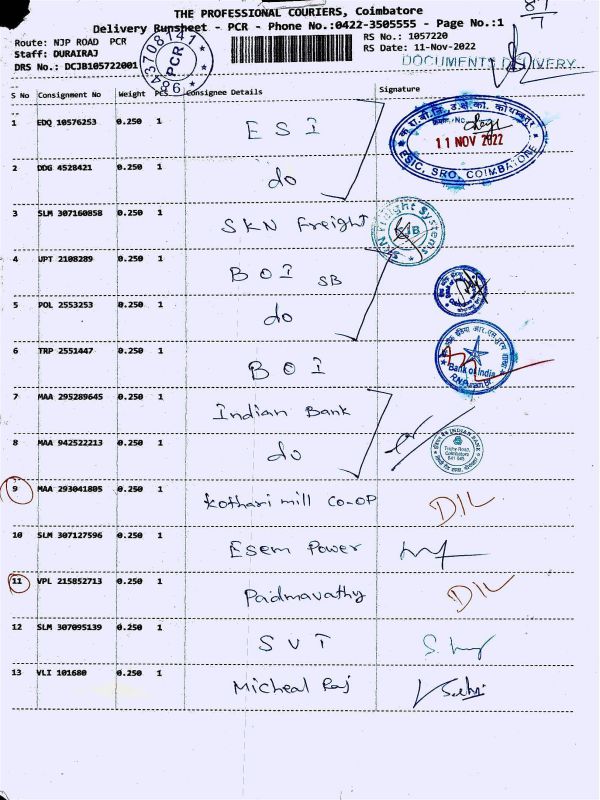 THE PROFESSIONAL COURIERS, Coimbatore
Delivery Runsheet - PCR - Phone No.:0422-3505555 - Page No.:1
Route: NJP ROAD PCR
RS No.: 1057220
Staff: DURAIRAJ
RS Date: 11-Nov-2022
DRS No.: DCJB105722001
PCR
DOCUMENTS DELIVERY
S No Consignment No Weight PCS Consignee Details Signature
1 EDQ 10576253 0.250 1 ESI
11 NOV 2022
ESIC, SRO, COIMBATORE
2 DDG 4528421 0.250 1 do
3 SLM 307160858 0.250 1 SKN Freight
SKN Freight Systems
4 UPT 2108289 0.250 1 BOI SB
5 POL 2553253 0.250 1 do
6 TRP 2551447 0.250 1 BOI
Bank of India
R.N.Puram Br.
7 MAA 295289645 0.250 1 Indian Bank
8 MAA 942522213 0.250 1 do
INDIAN BANK
Trichy Road,
Coimbatore
9 MAA 293041805 0.250 1 Kothari mill CO-OP DIL
10 SLM 307127596 0.250 1 Esem Power
11 VPL 215852713 0.250 1 Padmavathy DIL
12 SLM 307095139 0.250 1 SVT
13 VLI 101680 0.250 1 Micheal Raj